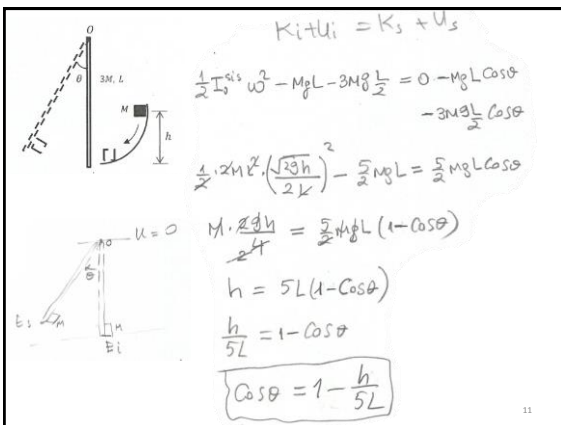 O
θ
3M, L
M
h
Ki+Ui = Ks + Us
½ I₀ˢⁱˢ ω² - MgL - 3Mg L/2 = 0 - MgL Cosθ
- 3Mg L/2 Cosθ
½ · 2ML² · (√2gh / 2L)² - 5/2 MgL = 5/2 MgL Cosθ
M · 2gh / 24 = 5/2 MgL (1 - Cosθ)
h = 5L (1 - Cosθ)
h/5L = 1 - Cosθ
Cosθ = 1 - h/5L
O
U = 0
θ
Es
M
M
Ei
11